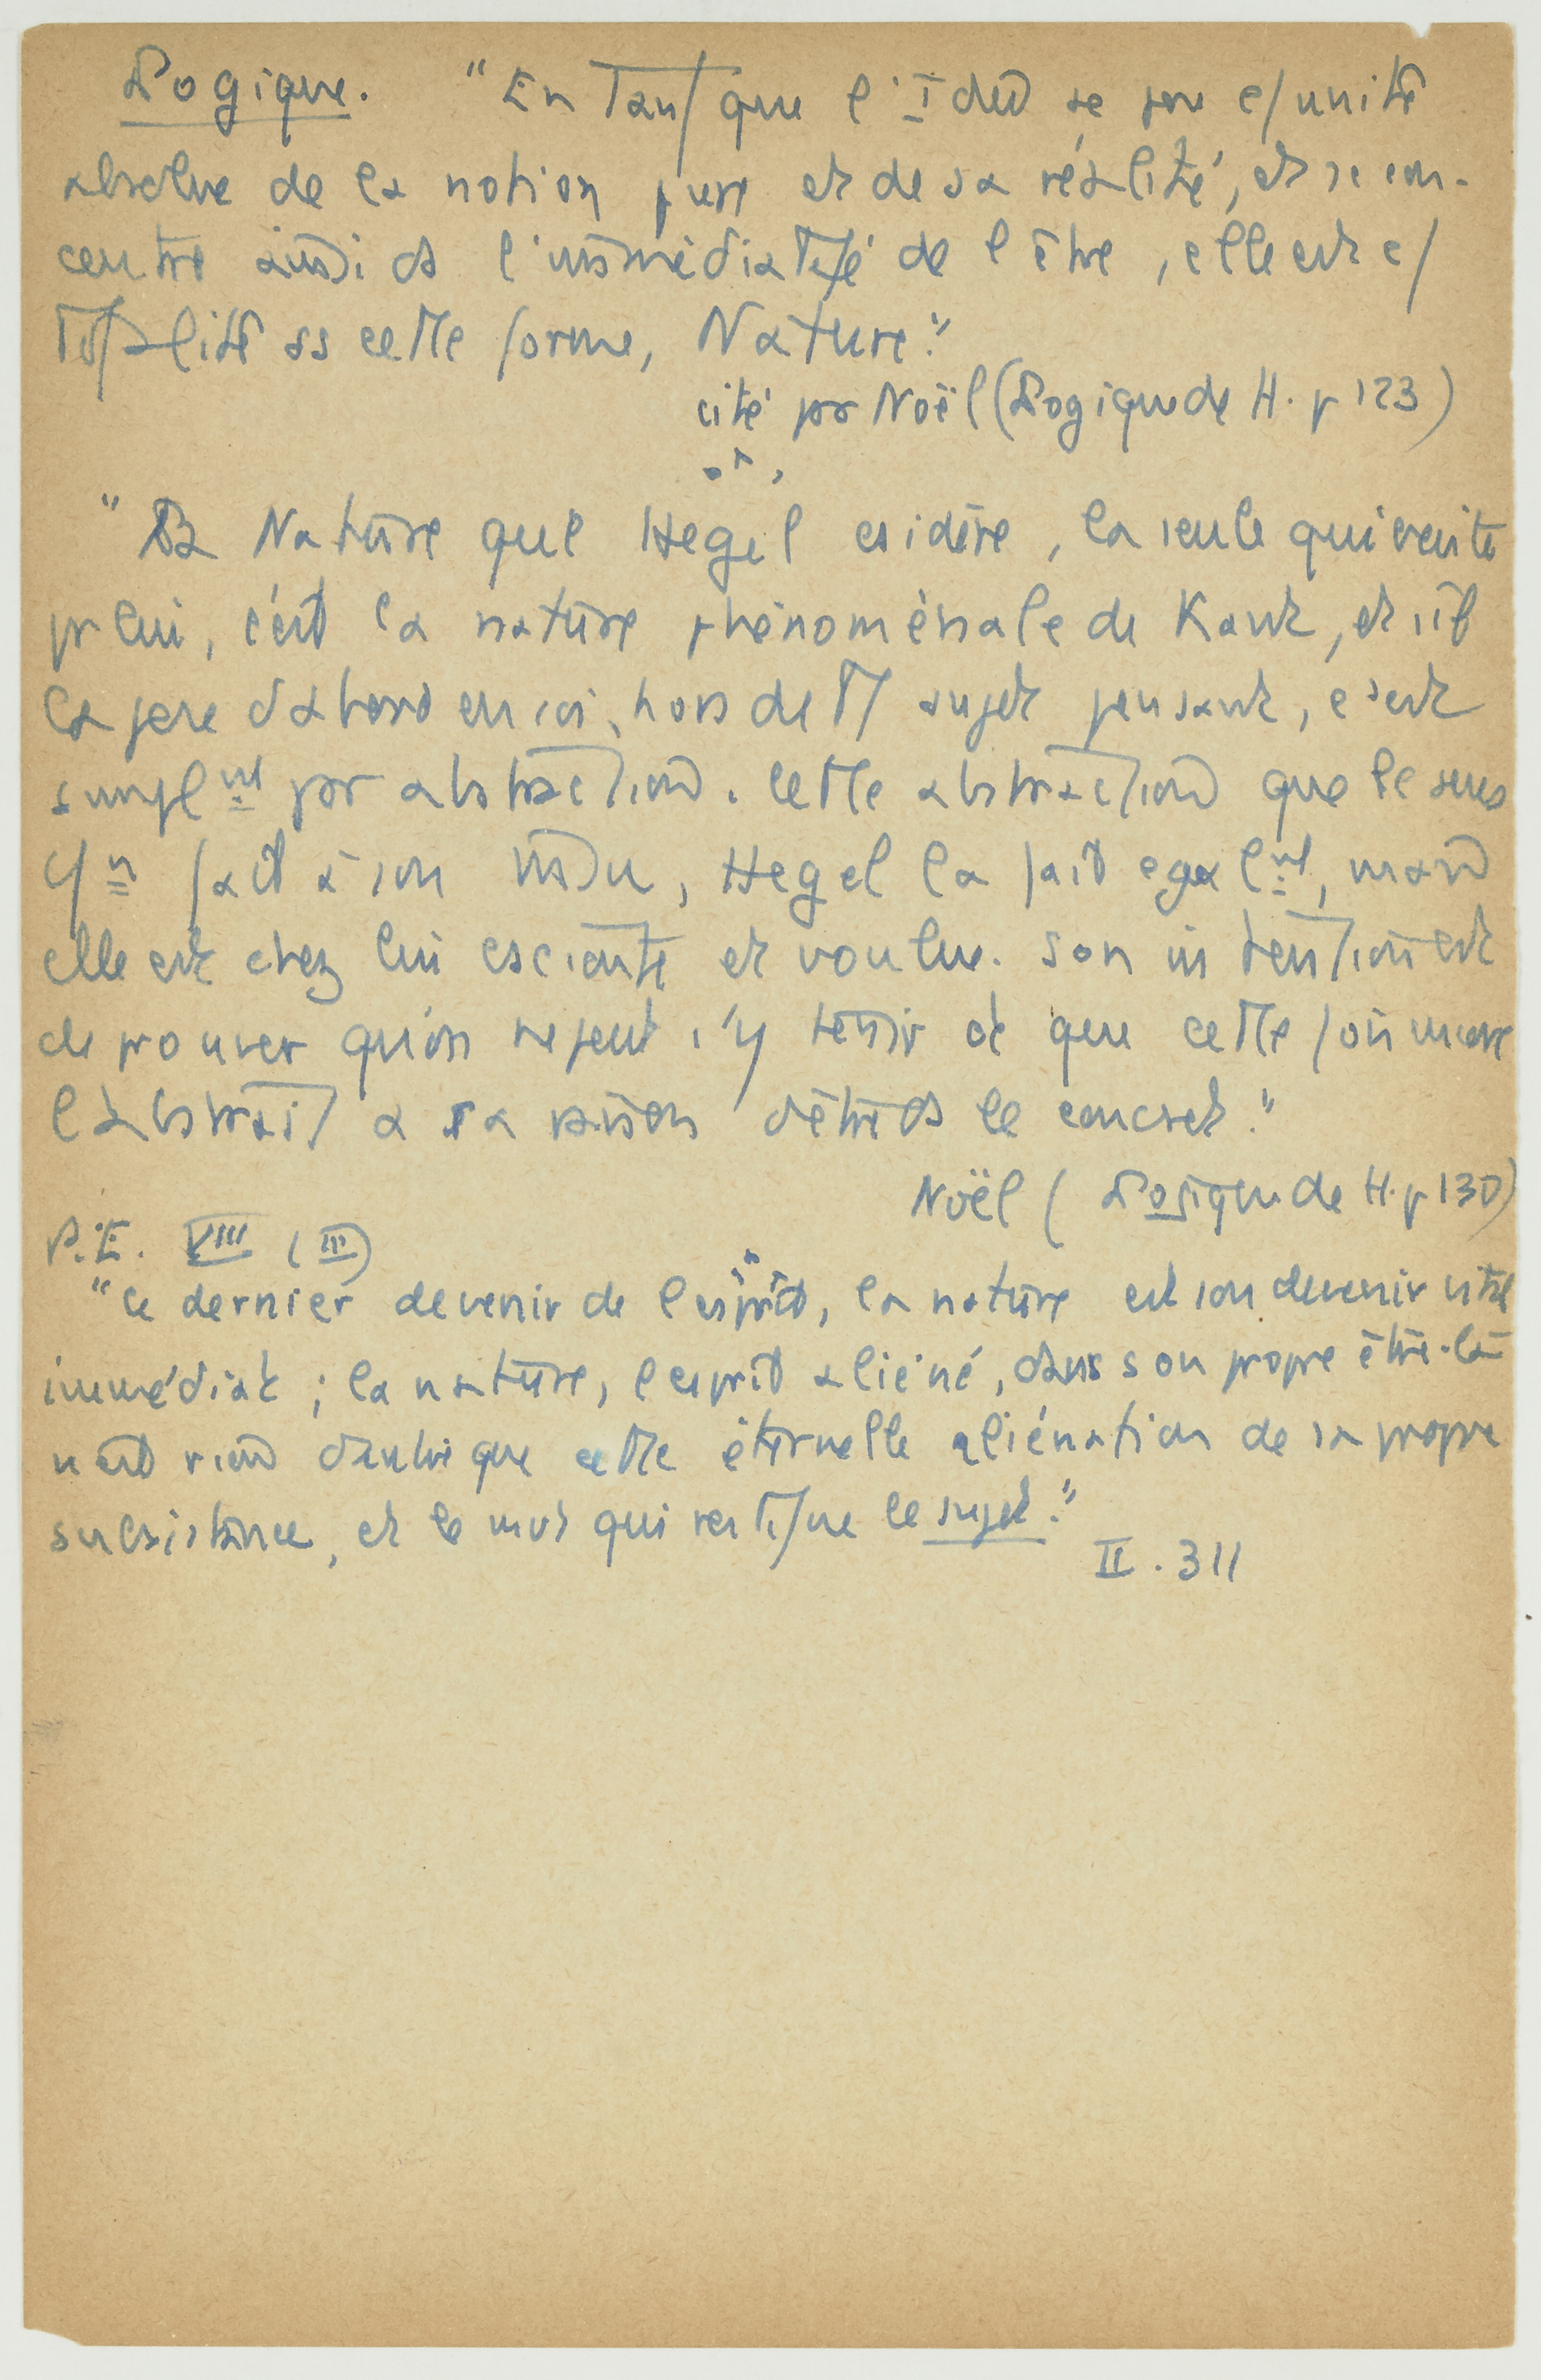 Logique. "En Tant que l'Idée se pose c/ unité
absolue de la notion pure et de sa réalité, et se con-
centre ainsi ds l'immédiateté de l'être, elle est c/
totalité ss cette forme, Nature."
cité par Noël (Logique de H. p 123)
"La Nature que Hegel csidère, la seule qui existe
pr lui, c'est la nature phénoménale de Kant, et s'il
la pose d'abord en soi, hors de tt sujet pensant, c'est
simplmt par abstraction. Cette abstraction que le sens
cn fait à son insu, Hegel la fait égalmt, mais
elle est chez lui csciente et voulue. Son intention est
de prouver qu'on ne peut s'y tenir et que cette fois encore
l'abstrait a sa raison d'être ds le concret."
Noël (Logique de H. p 130)
P.E. VIII (III)
"Ce dernier devenir de l'esprit, la nature est son devenir vital
immédiat ; la nature, l'esprit aliéné, dans son propre être-là
n'est rien d'autre que cette éternelle aliénation de sa propre
subsistance, et le mvt qui restitue le sujet."
II. 311